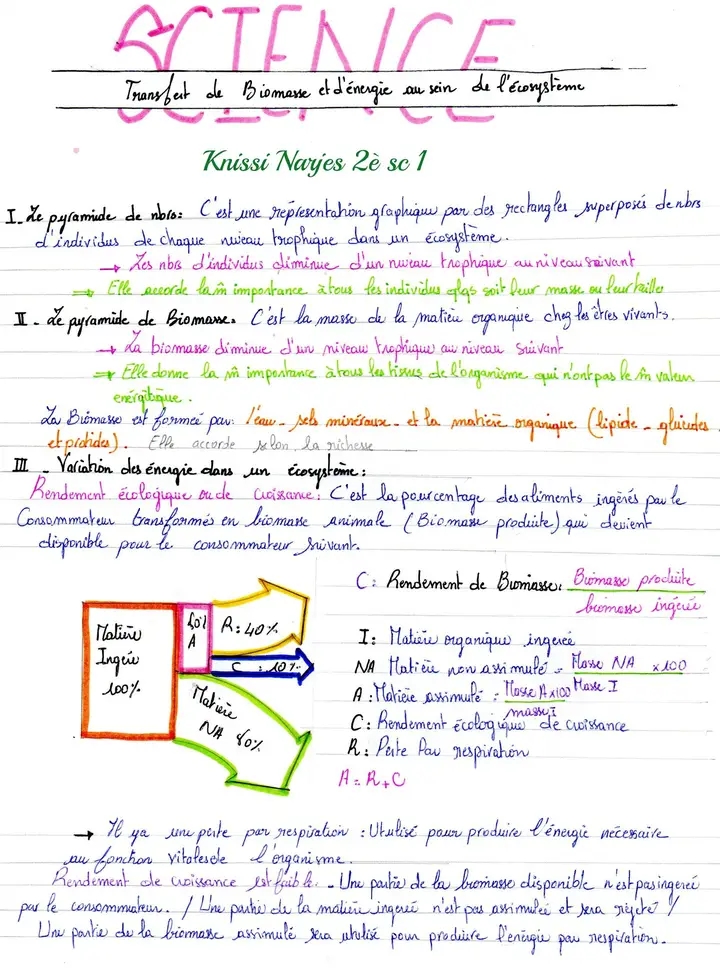 SCIENCE
Transfert de Biomasse et d'énergie au sein de l'écosystème
Knissi Narjes 2è sc 1
I_ Le pyramide de nbrs: C'est une représentation graphique par des rectangles superposés de nbrs
d'individus de chaque niveau trophique dans un écosystème.
→ Les nbrs d'individus diminue d'un niveau trophique au niveau suivant
⇒ Elle accorde la m̂ importance à tous les individus qlqs soit leur masse ou leur taille
II - Le pyramide de Biomasse. C'est la masse de la matièu organique chez les êtres vivants.
→ La biomasse diminue d'un niveau trophique au niveau suivant
⇒ Elle donne la m̂ importance à tous les tissus de l'organisme qui n'ont pas le m̂ valeur
energétique.
La Biomasse est formée par: l'eau - sels minéraux - et la matière organique (lipide - glucides
et protides). Elle accorde selon la richesse
III - Variation des énergie dans un écosystème:
Rendement écologique ou de croissance: C'est la pourcentage des aliments ingérés par le
Consommateur transformés en biomasse animale (Biomasse produite) qui devient
disponible pour le consommateur suivant.
C: Rendement de Biomasse: Biomasse produite
biomasse ingérée
Matière
Ingéré
100%
A
R: 40%
C : 10%
Matière
NA 80%
I: Matière organique ingereé
NA Matière non assimulé = Masse NA x100
Masse I
A: Matière assimulé = Masse A x100
masse I
C: Rendement écologique de croissance
R: Perte Par respiration
A = R + C
→ Il ya une perte par respiration : Utulisé pour produire l'énergie nécessaire
au fonction vitales de l'organisme.
Rendement de croissance est faible. - Une partie de la biomasse disponible n'est pas ingereé
par le consommateur. / Une partie de la matière ingereé n'est pas assimileé et sera rejeté /
Une partie de la biomasse assimulé sera utulisé pour produire l'énergie par respiration.